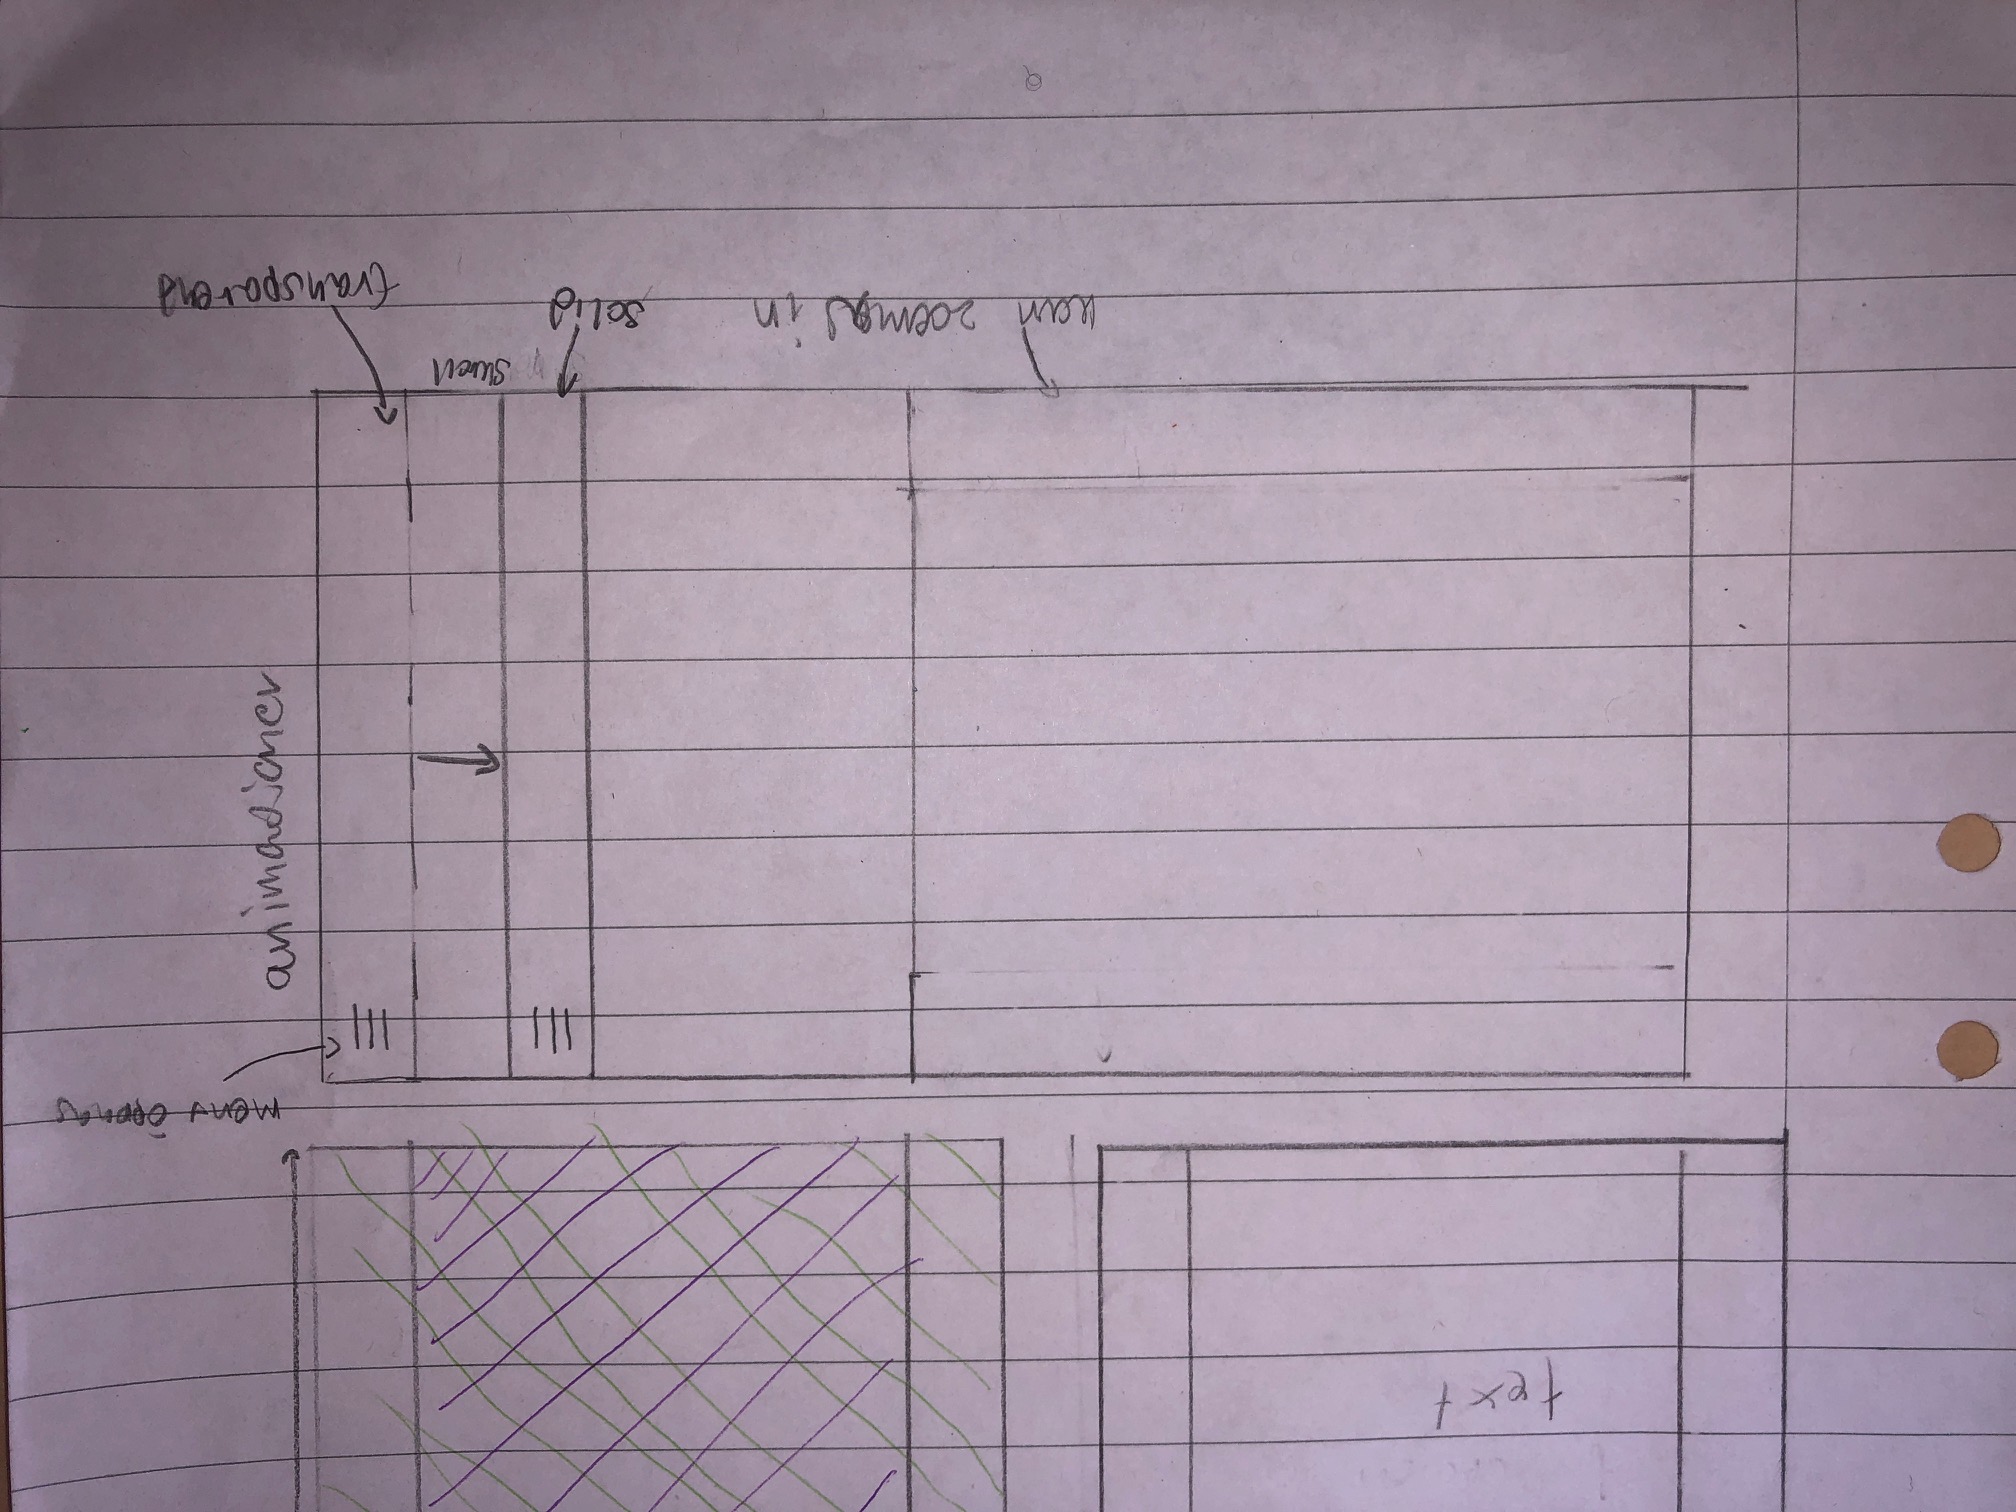 meny öppnas
animationer
transparent
solid
kan zoomas in
text